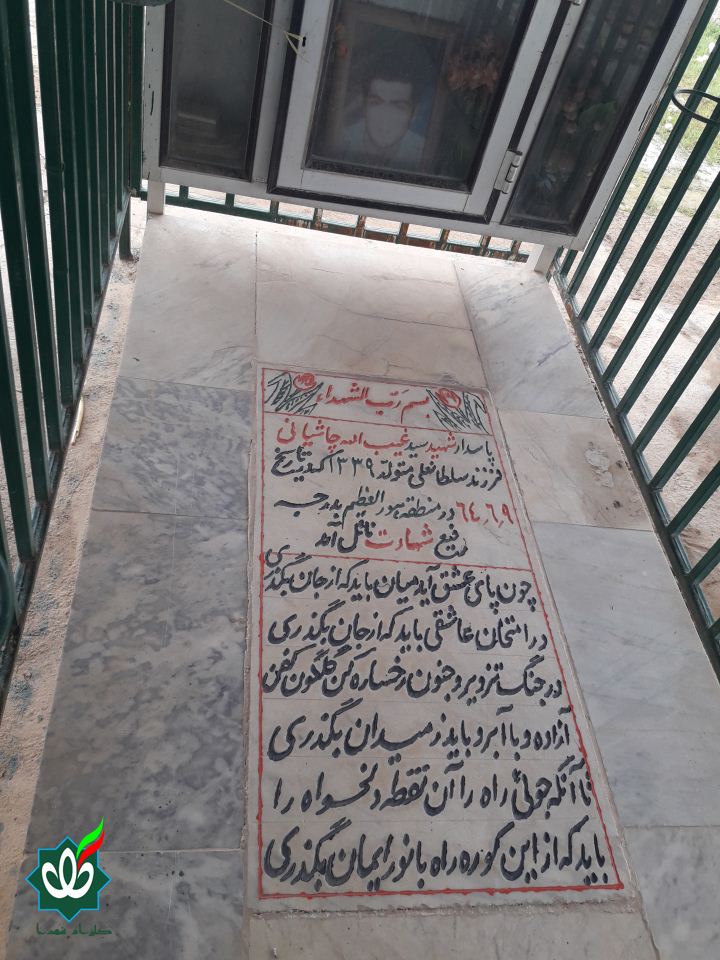 بسم رب الشهداء
پاسدار شهید سید غیب الله چاشیانی
فرزند سلطانعلی متولد ۱۳۳۹ که در تاریخ
۶۴٫۶٫۹ در منطقه هور العظیم بدرجه
رفیع شهادت نائل آمد
چون پای عشق آید میان باید که از جان بگذری
در امتحان عاشقی باید که از جان بگذری
در جنگ تزویر و جنون رخساره کن گلگون کفن
آزاده و با آبرو باید ز میدان بگذری
تا آنکه جوئی راه را آن نقطه دلخواه را
باید که از این کوره راه با نور ایمان بگذری